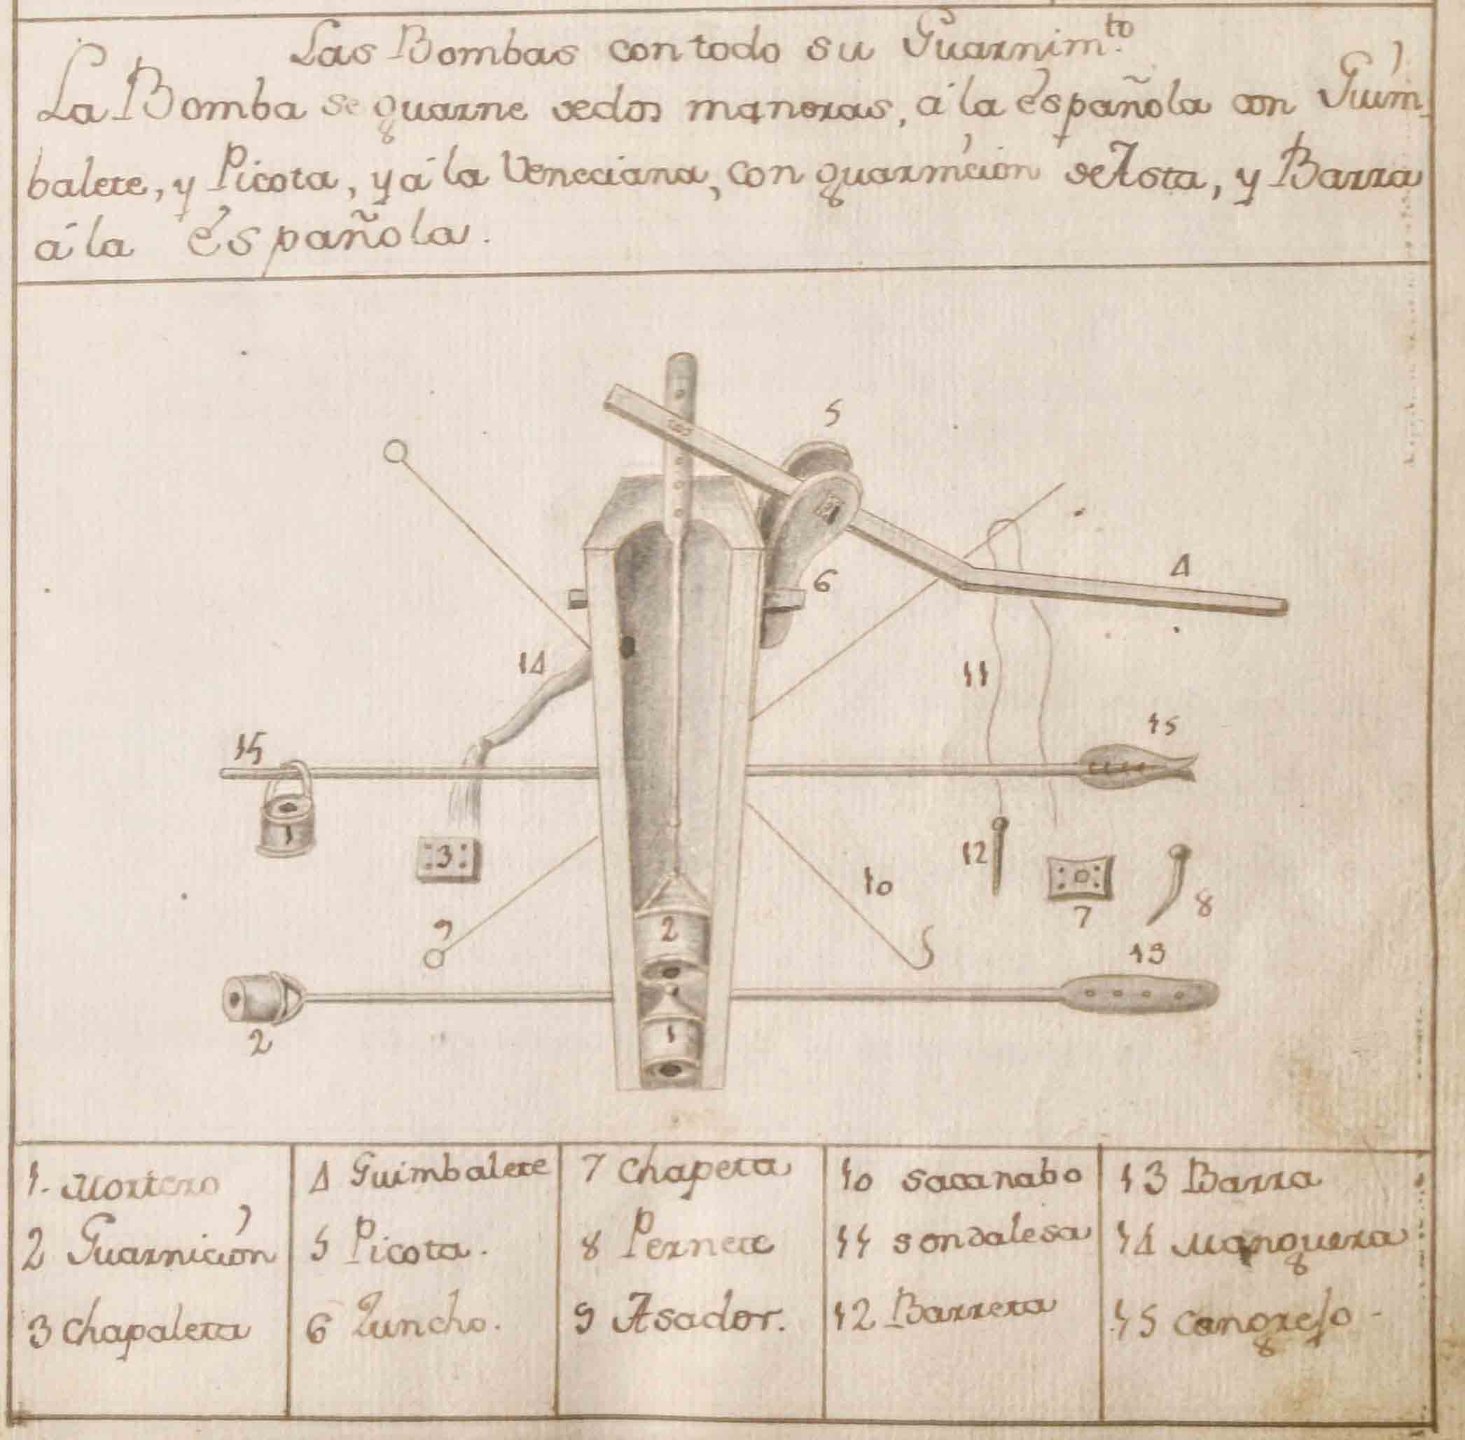 Las Bombas con todo su Guarnim.to
La Bomba se guarne de dos maneras, á la española con Guim-
balete, y Picota, y á la Veneciana, con guarnición de Asta, y Barra
á la española.
5
4
6
14
11
15
15
1
3
12
7
8
10
9
2
13
2
1
1. Mortero
2 Guarnición
3 chapaleta
4 Guimbalete
5 Picota.
6 Zuncho.
7 chapeta
8 Pernete
9 Asador.
10 sacanabo
11 sondalesa
12 Barrera
13 Barra
14 Manguera
15 Cangrejo -